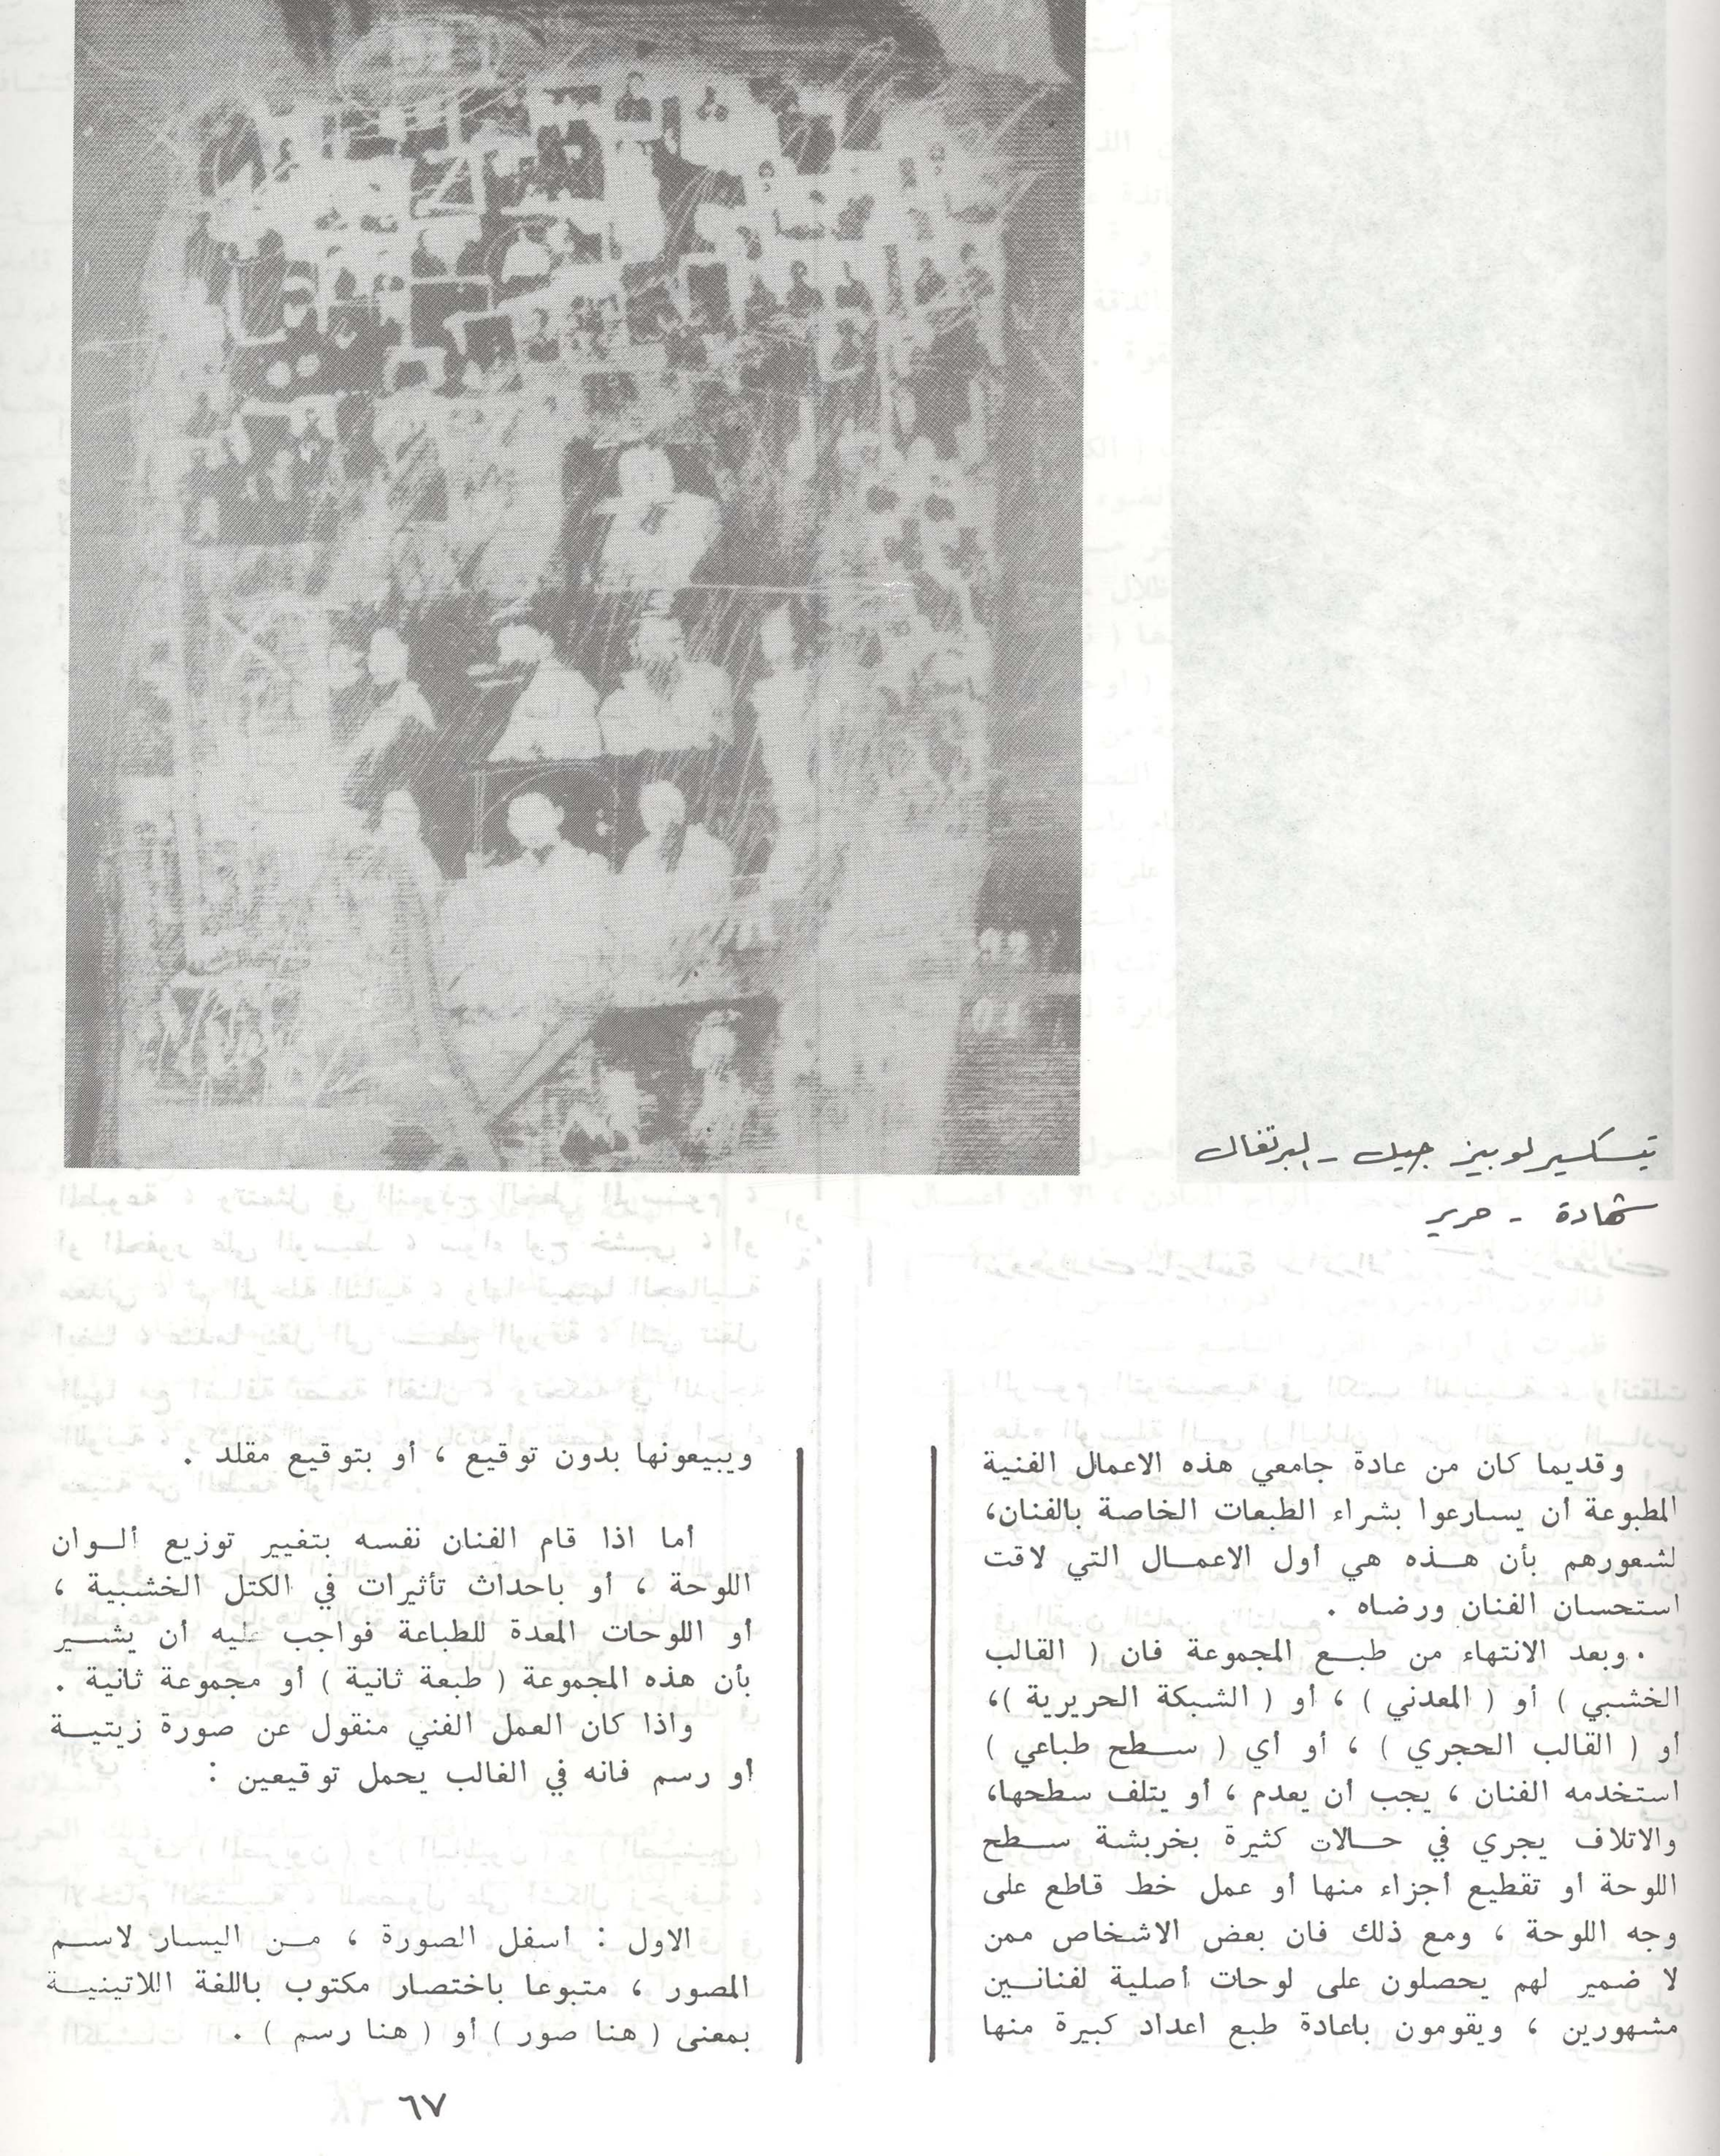 تيسكسير لوبيز جيل - البرتغال
شهادة - حرير
وقديما كان من عادة جامعي هذه الاعمال الفنية
المطبوعة أن يسارعوا بشراء الطبعات الخاصة بالفنان،
لشعورهم بأن هــذه هي أول الاعمــال التي لاقت
استحسان الفنان ورضاه .
وبعد الانتهاء من طبــع المجموعة فان ( القالب
الخشبي ) أو ( المعدني ) ، أو ( الشبكة الحريرية )،
أو ( القالب الحجري ) ، أو أي ( ســطح طباعي )
استخدمه الفنان ، يجب أن يعدم ، أو يتلف سطحها،
والاتلاف يجري في حــالات كثيرة بخربشة ســطح
اللوحة أو تقطيع أجزاء منها أو عمل خط قاطع على
وجه اللوحة ، ومع ذلك فان بعض الاشخاص ممن
لا ضمير لهم يحصلون على لوحات أصلية لفنانــين
مشهورين ، ويقومون باعادة طبع اعداد كبيرة منها
ويبيعونها بدون توقيع ، أو بتوقيع مقلد .
أما اذا قام الفنان نفسه بتغيير توزيع ألــوان
اللوحة ، أو باحداث تأثيرات في الكتل الخشبية ،
أو اللوحات المعدة للطباعة فواجب عليه أن يشــير
بأن هذه المجموعة ( طبعة ثانية ) أو مجموعة ثانية .
واذا كان العمل الفني منقول عن صورة زيتيــة
أو رسم فانه في الغالب يحمل توقيعين :
الاول : أسفل الصورة ، مــن اليسار لاســم
المصور ، متبوعا باختصار مكتوب باللغة اللاتينيــة
بمعنى ( هنا صور ) أو ( هنا رسم ) .
٦٧